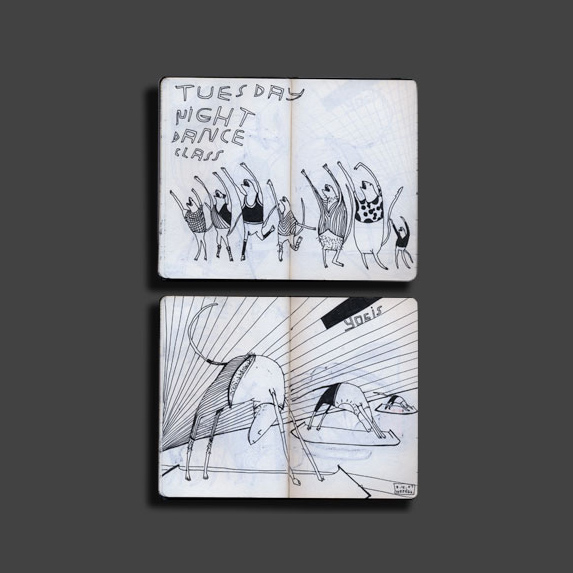 TUESDAY
NIGHT
DANCE
CLASS
YOGIS